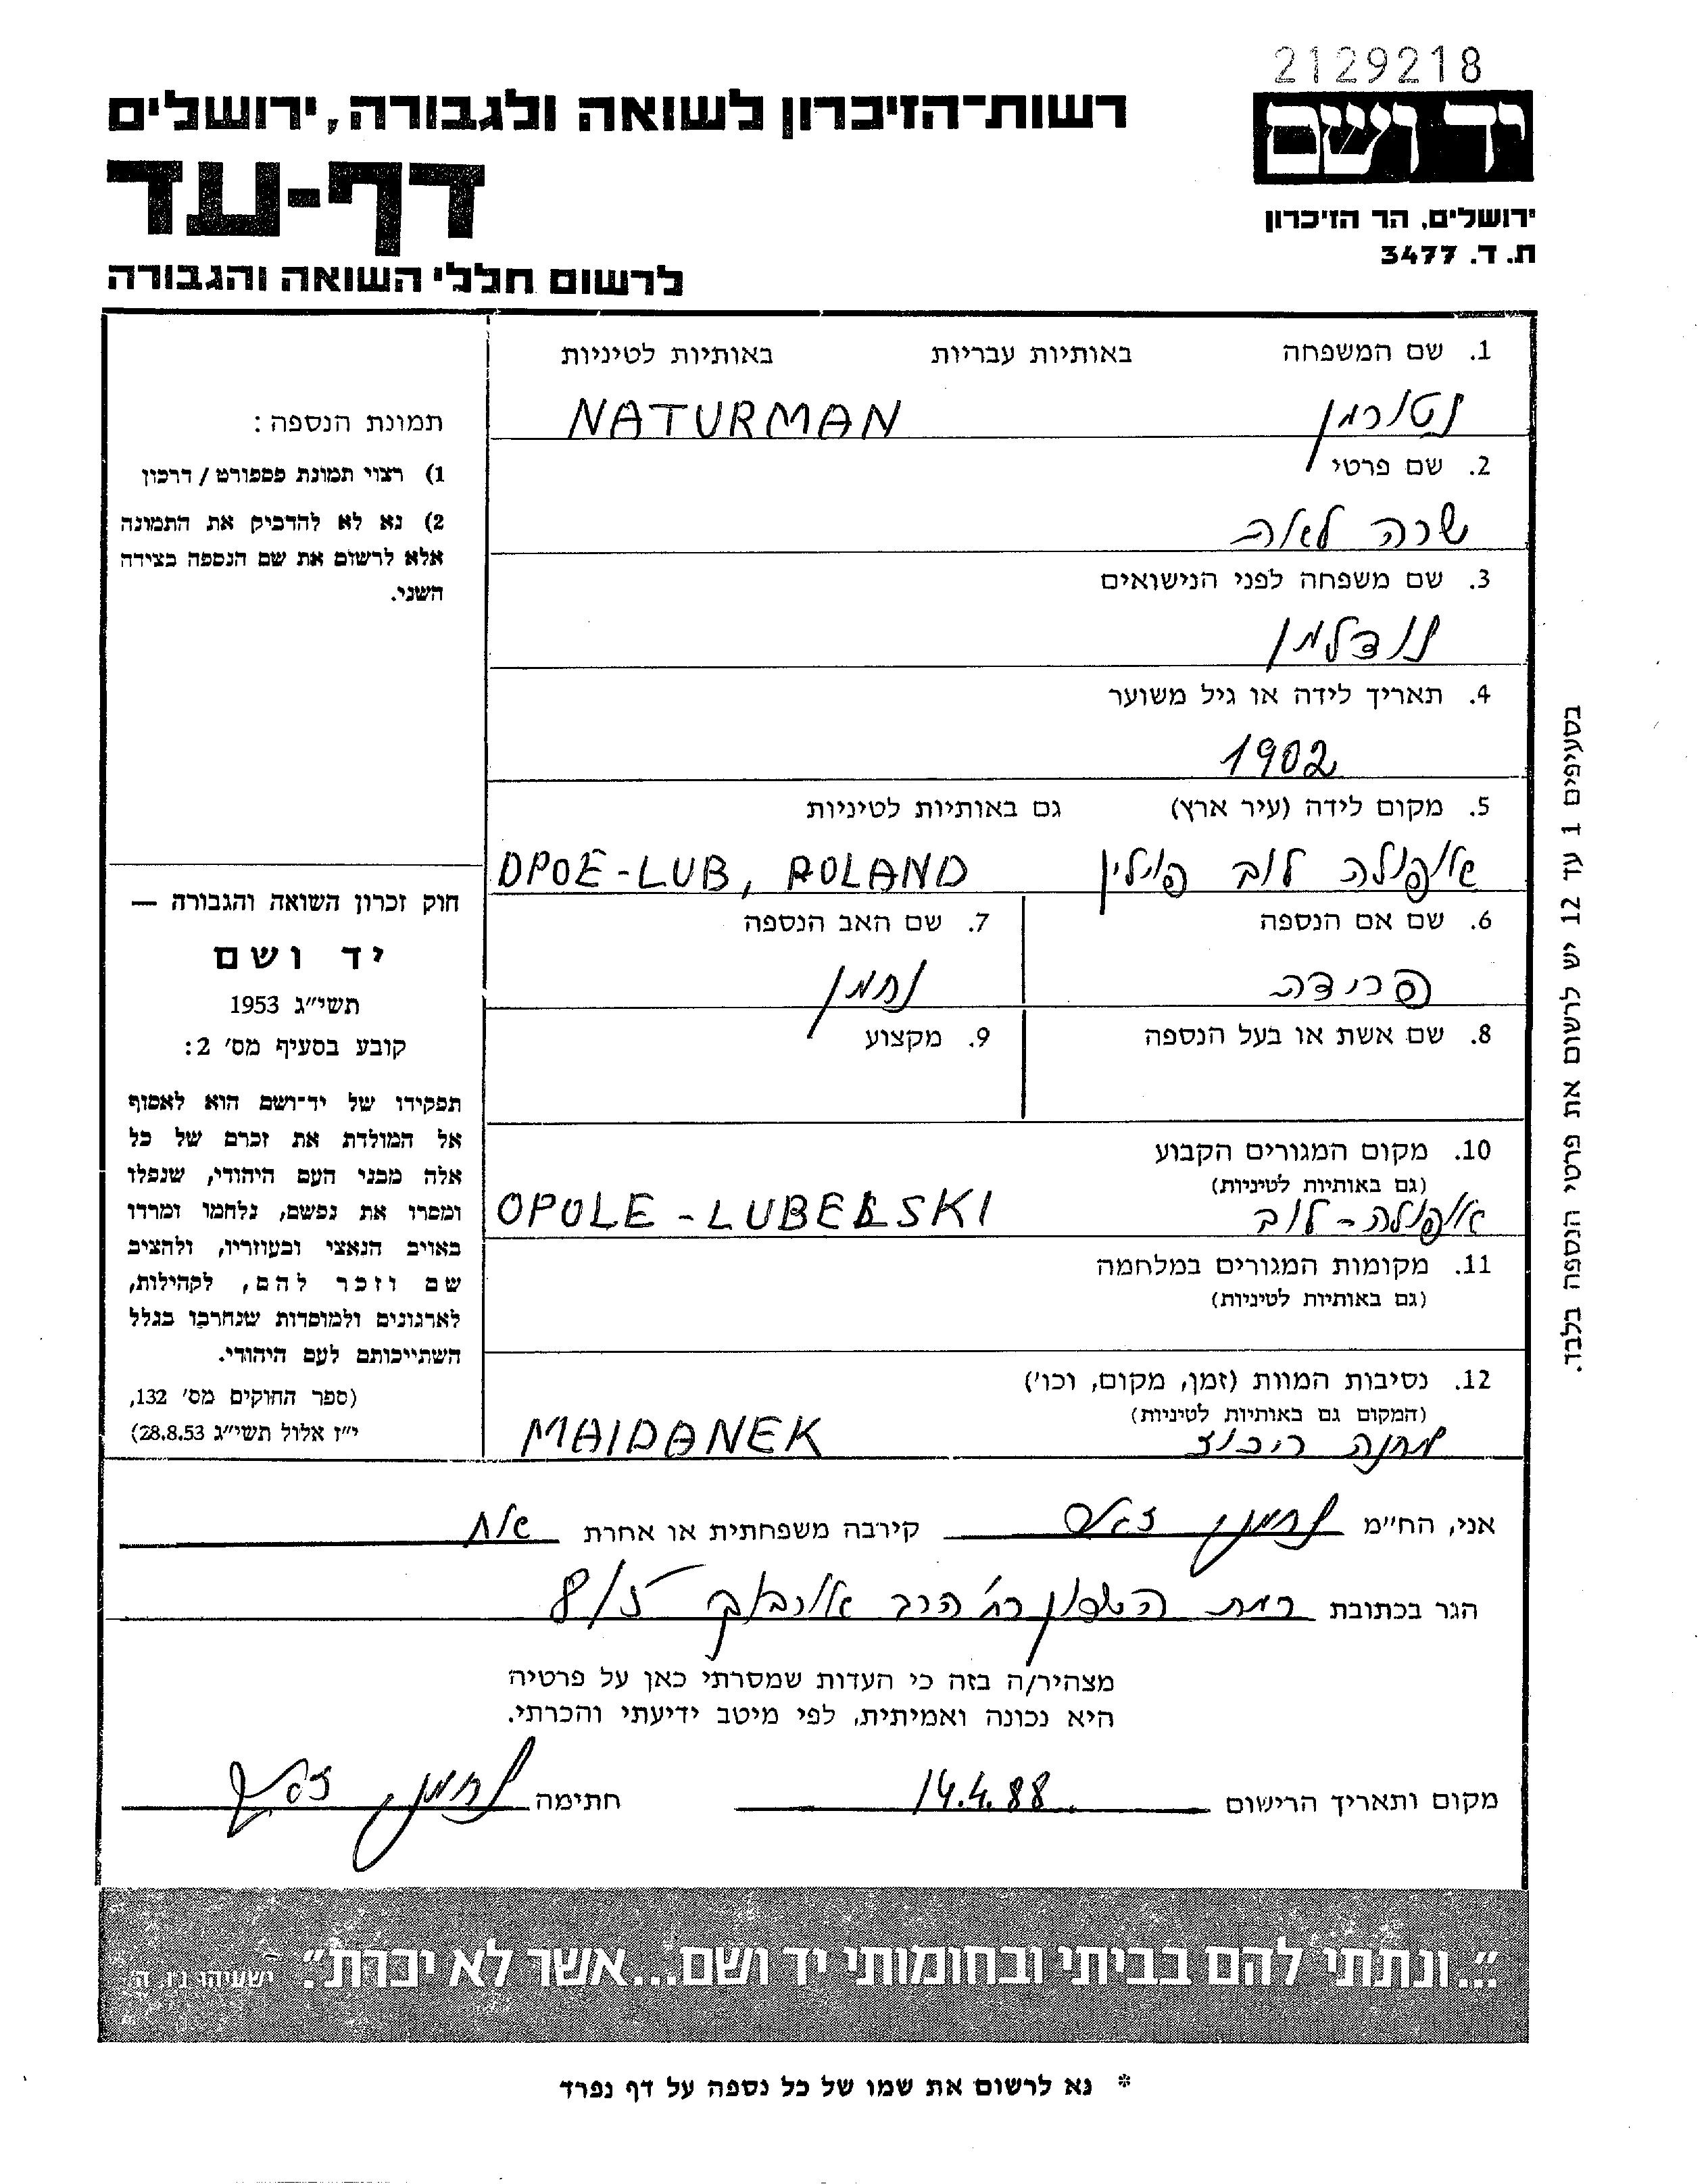 2129218
יד ושם
רשות־הזיכרון לשואה ולגבורה, ירושלים
דף-עד
ירושלים, הר הזיכרון
ת. ד. 3477
לרשום חללי השואה והגבורה
1. שם המשפחה באותיות עבריות באותיות לטיניות
נטורמן NATURMAN
2. שם פרטי
שרה לאה
3. שם משפחה לפני הנישואים
נודלמן
4. תאריך לידה או גיל משוער
1902
5. מקום לידה (עיר ארץ) גם באותיות לטיניות
אופולה לוב פוילין OPOE-LUB, POLAND
6. שם אם הנספה 7. שם האב הנספה
פרידה נחמן
8. שם אשת או בעל הנספה 9. מקצוע
10. מקום המגורים הקבוע
(גם באותיות לטיניות)
אופולה-לוב OPOLE-LUBELSKI
11. מקומות המגורים במלחמה
(גם באותיות לטיניות)
12. נסיבות המוות (זמן, מקום, וכו')
(המקום גם באותיות לטיניות)
מחנה ריכוז MAIDANEK
תמונת הנספה:
1) רצוי תמונת פספורט / דרכון
2) נא לא להדביק את התמונה
אלא לרשום את שם הנספה בצידה
השני.
חוק זכרון השואה והגבורה —
יד ושם
תשי״ג 1953
קובע בסעיף מס' 2:
תפקידו של יד־ושם הוא לאסוף
אל המולדת את זכרם של כל
אלה מבני העם היהודי, שנפלו
ומסרו את נפשם, נלחמו ומרדו
באויב הנאצי ובעוזריו, ולהציב
שם וזכר להם, לקהילות,
לארגונים ולמוסדות שנחרבו בגלל
השתייכותם לעם היהודי.
(ספר החוקים מס' 132,
י״ז אלול תשי״ג 28.8.53)
בסעיפים 1 עד 12 יש לרשום את פרטי הנספה בלבד.
אני, הח״מ נחמן קירבה משפחתית או אחרת אח
הגר בכתובת רמת השרון רח' הרב 8/5
מצהיר/ה בזה כי העדות שמסרתי כאן על פרטיה
היא נכונה ואמיתית, לפי מיטב ידיעתי והכרתי.
מקום ותאריך הרישום 14.4.88 חתימה נחמן
"...ונתתי להם בביתי ובחומותי יד ושם...אשר לא יכרת". ישעיהו נ״ו, ה
* נא לרשום את שמו של כל נספה על דף נפרד